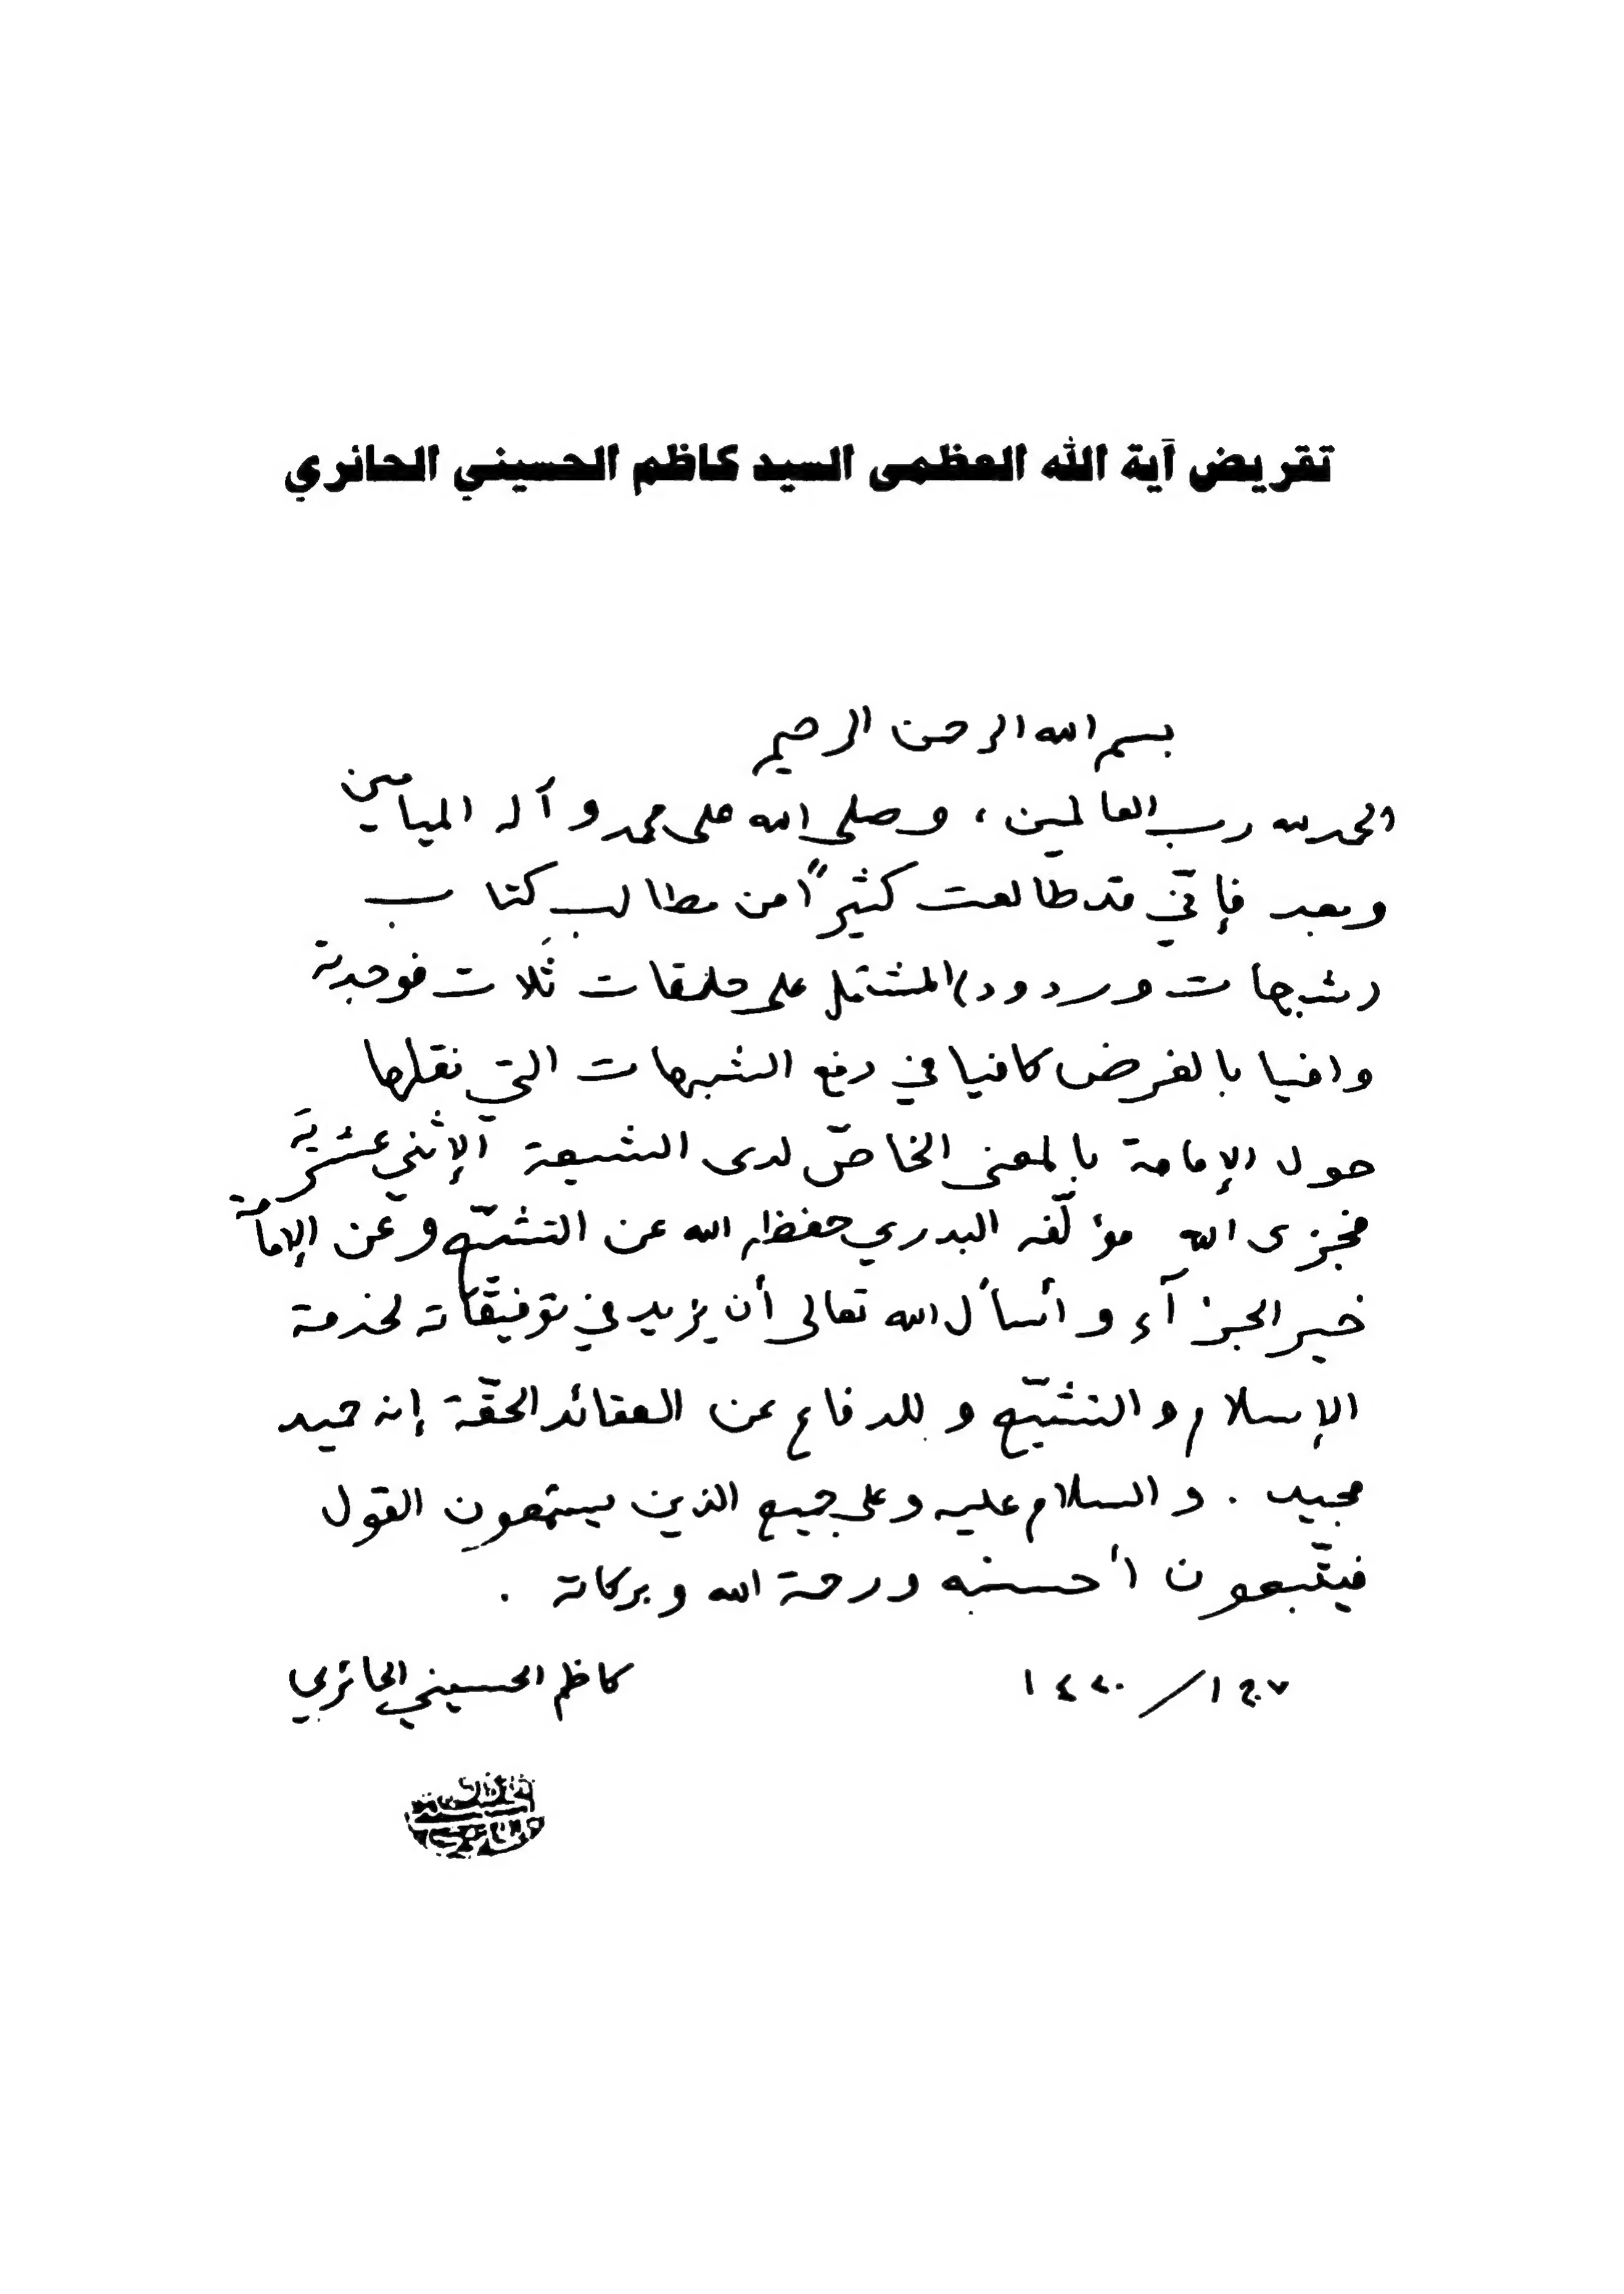 تقريض آية الله العظمى السيد كاظم الحسيني الحائري
بسم الله الرحمن الرحيم
الحمد لله رب العالمين ، وصلى الله على محمد وآله الميامين
وبعد فإنّي قد طالعت كثيراً من مطالب كتاب
(شبهات وردود) المشتمل على حلقات ثلاث فوجدته
وافيا بالغرض كافيا في دفع الشبهات التي نقلها
حول الإمامة بالمعنى الخاصّ لدى الشيعة الإثني عشريّة
فجزى الله مؤلّفه البدري حفظه الله عن التشيّع وعن الإمامة
خير الجزآء وأسأل الله تعالى أن يزيد في توفيقاته لخدمة
الإسلام والتشيّع وللدفاع عن العقائد الحقّة إنه حميد
مجيد . والسلام عليه وعلى جميع الذين يستمعون القول
فيتّبعون أحسنه ورحمة الله وبركاته .
١٤٢٠/ ج١ ٧
كاظم الحسيني الحائري